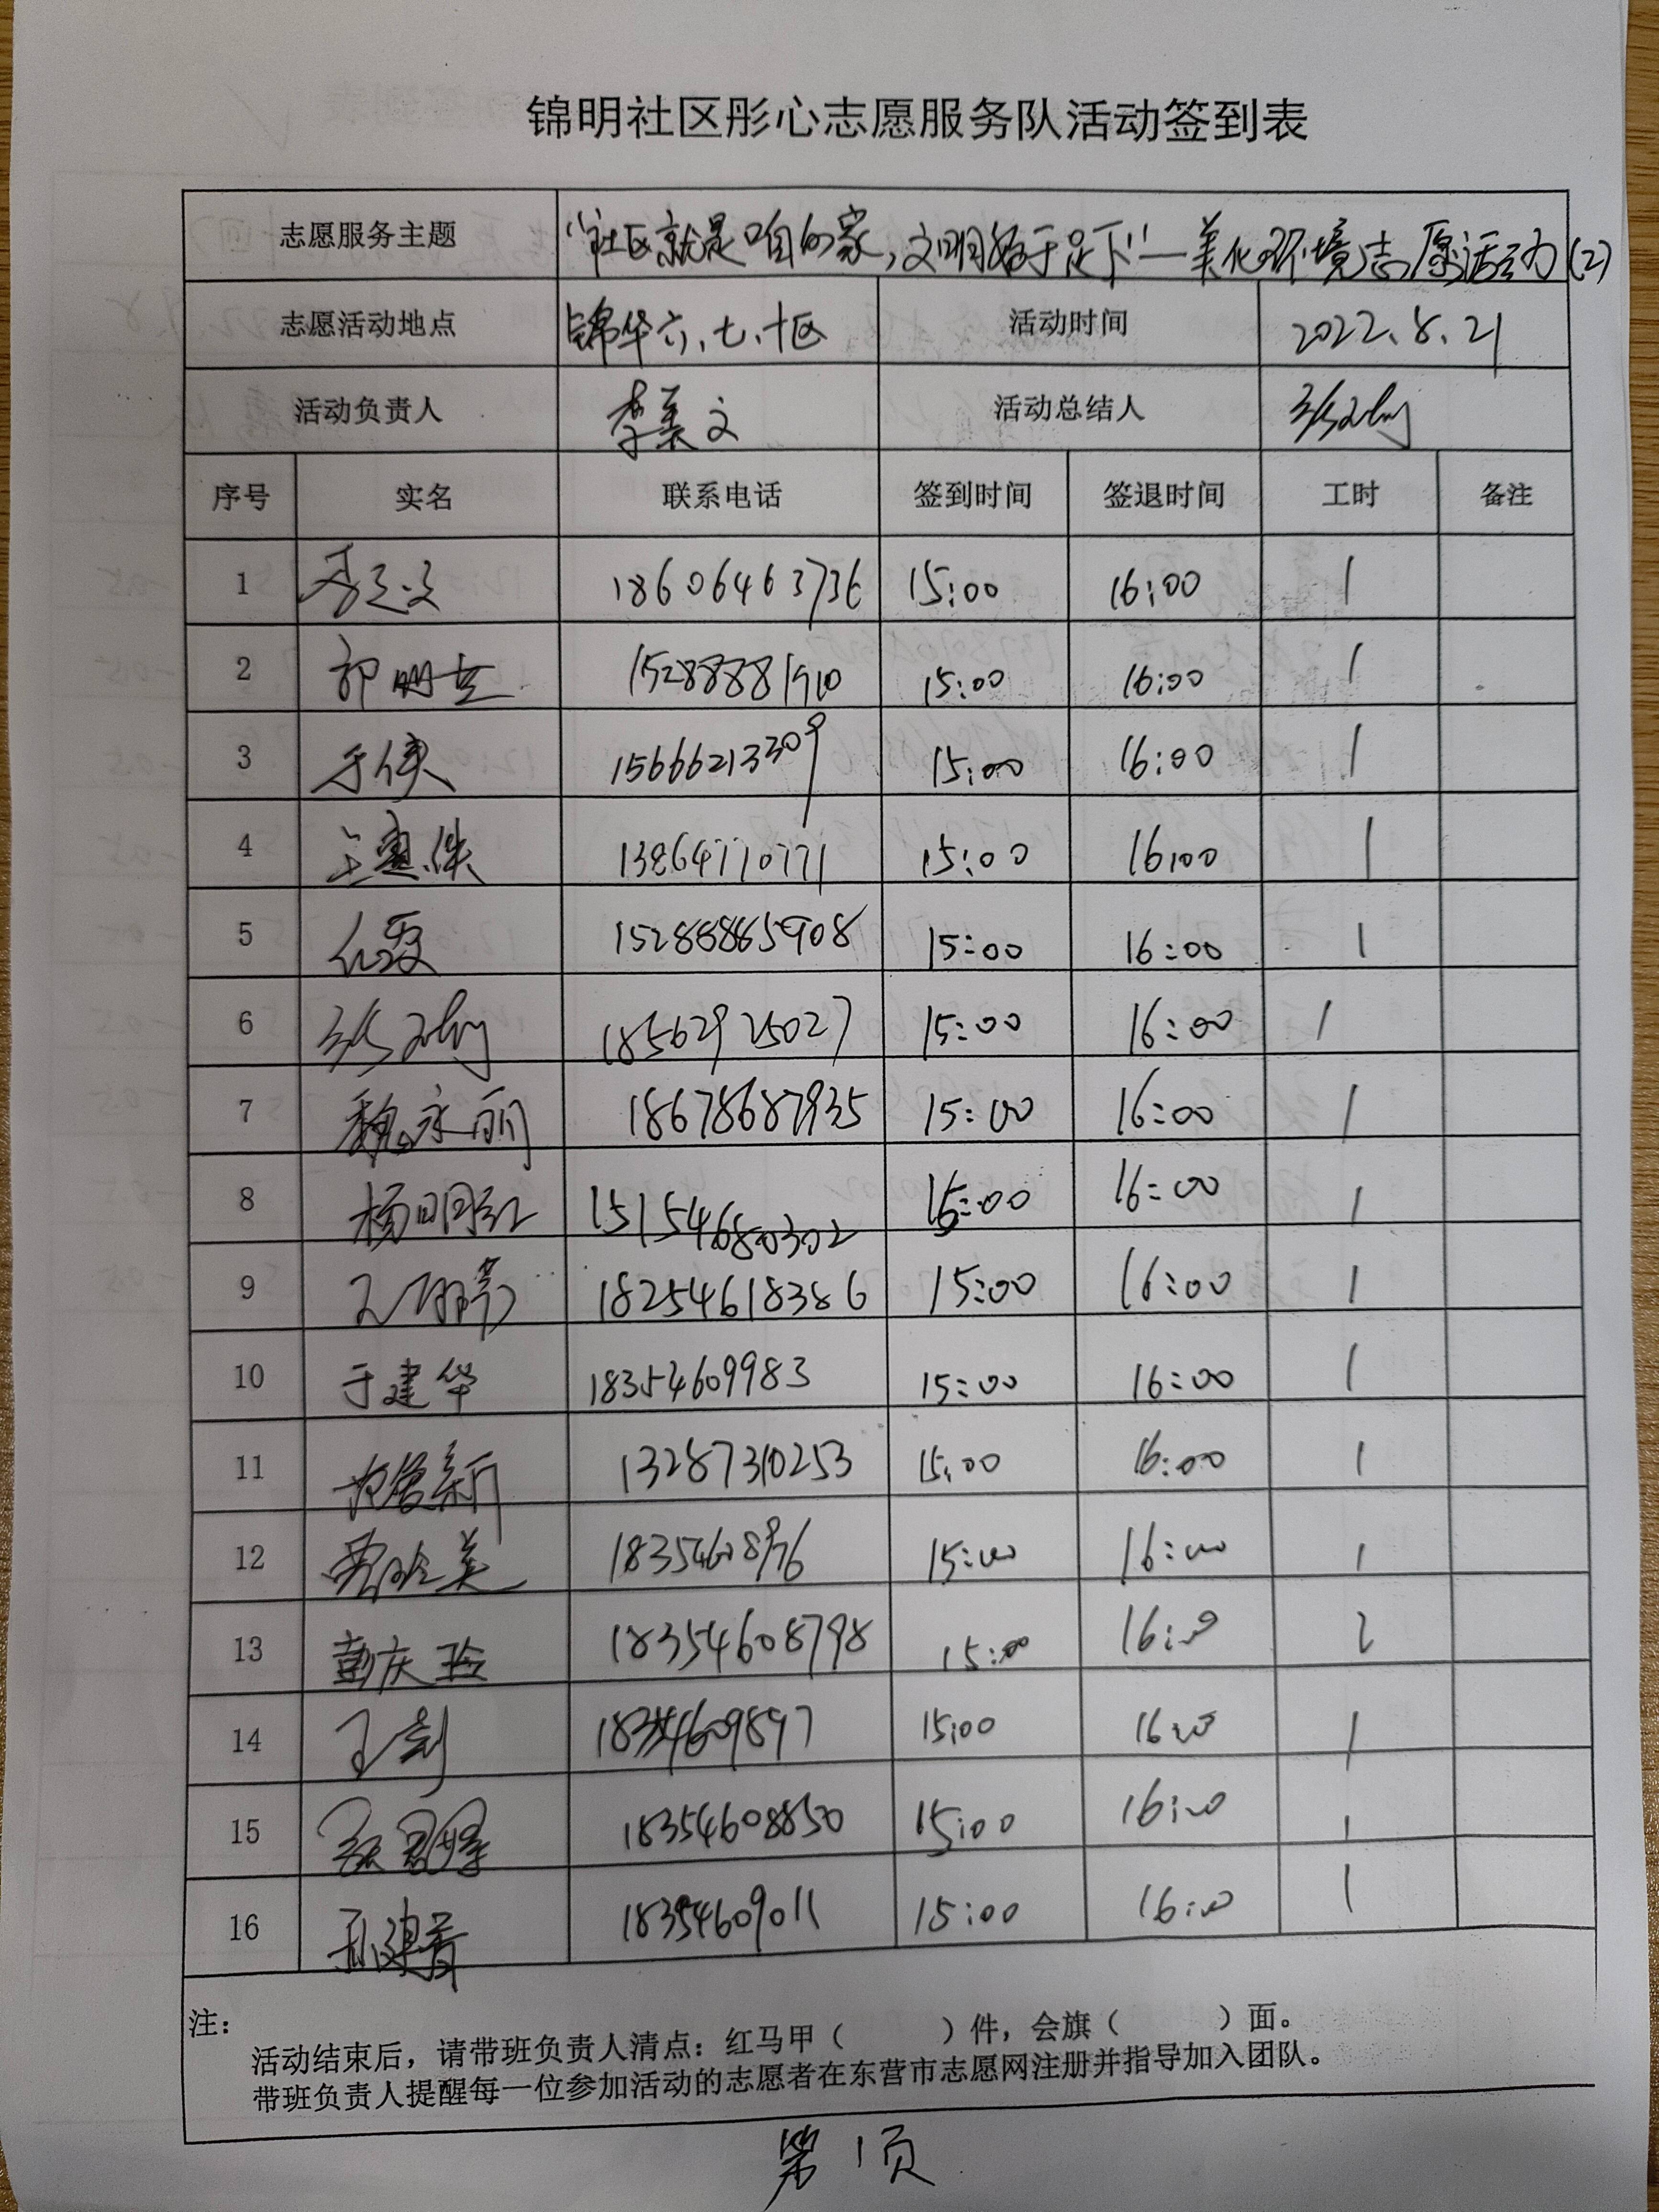 锦明社区彤心志愿服务队活动签到表
志愿服务主题 "社区就是咱的家,文明始于足下"—美化环境志愿活动(2)
志愿活动地点 锦华六、七、十区 活动时间 2022.8.21
活动负责人 李美文 活动总结人
序号 实名 联系电话 签到时间 签退时间 工时 备注
1 18606463736 15:00 16:00 1
2 郭明兰 15288881910 15:00 16:00 1
3 于侠 15666213309 15:00 16:00 1
4 13864710771 15:00 16:00 1
5 15288865908 15:00 16:00 1
6 18562925027 15:00 16:00 1
7 魏永丽 18678687935 15:00 16:00 1
8 杨明红 15:00 16:00 1
9 18254618386 15:00 16:00 1
10 于建华 18354609983 15:00 16:00 1
11 13287310253 15:00 16:00 1
12 15:00 16:00 1
13 彭庆玲 18354608798 15:00 16:00 2
14 18354609897 15:00 16:00 1
15 18354608850 15:00 16:00 1
16 18354609011 15:00 16:00 1
注:
活动结束后,请带班负责人清点:红马甲( )件,会旗( )面。
带班负责人提醒每一位参加活动的志愿者在东营市志愿网注册并指导加入团队。
第1页